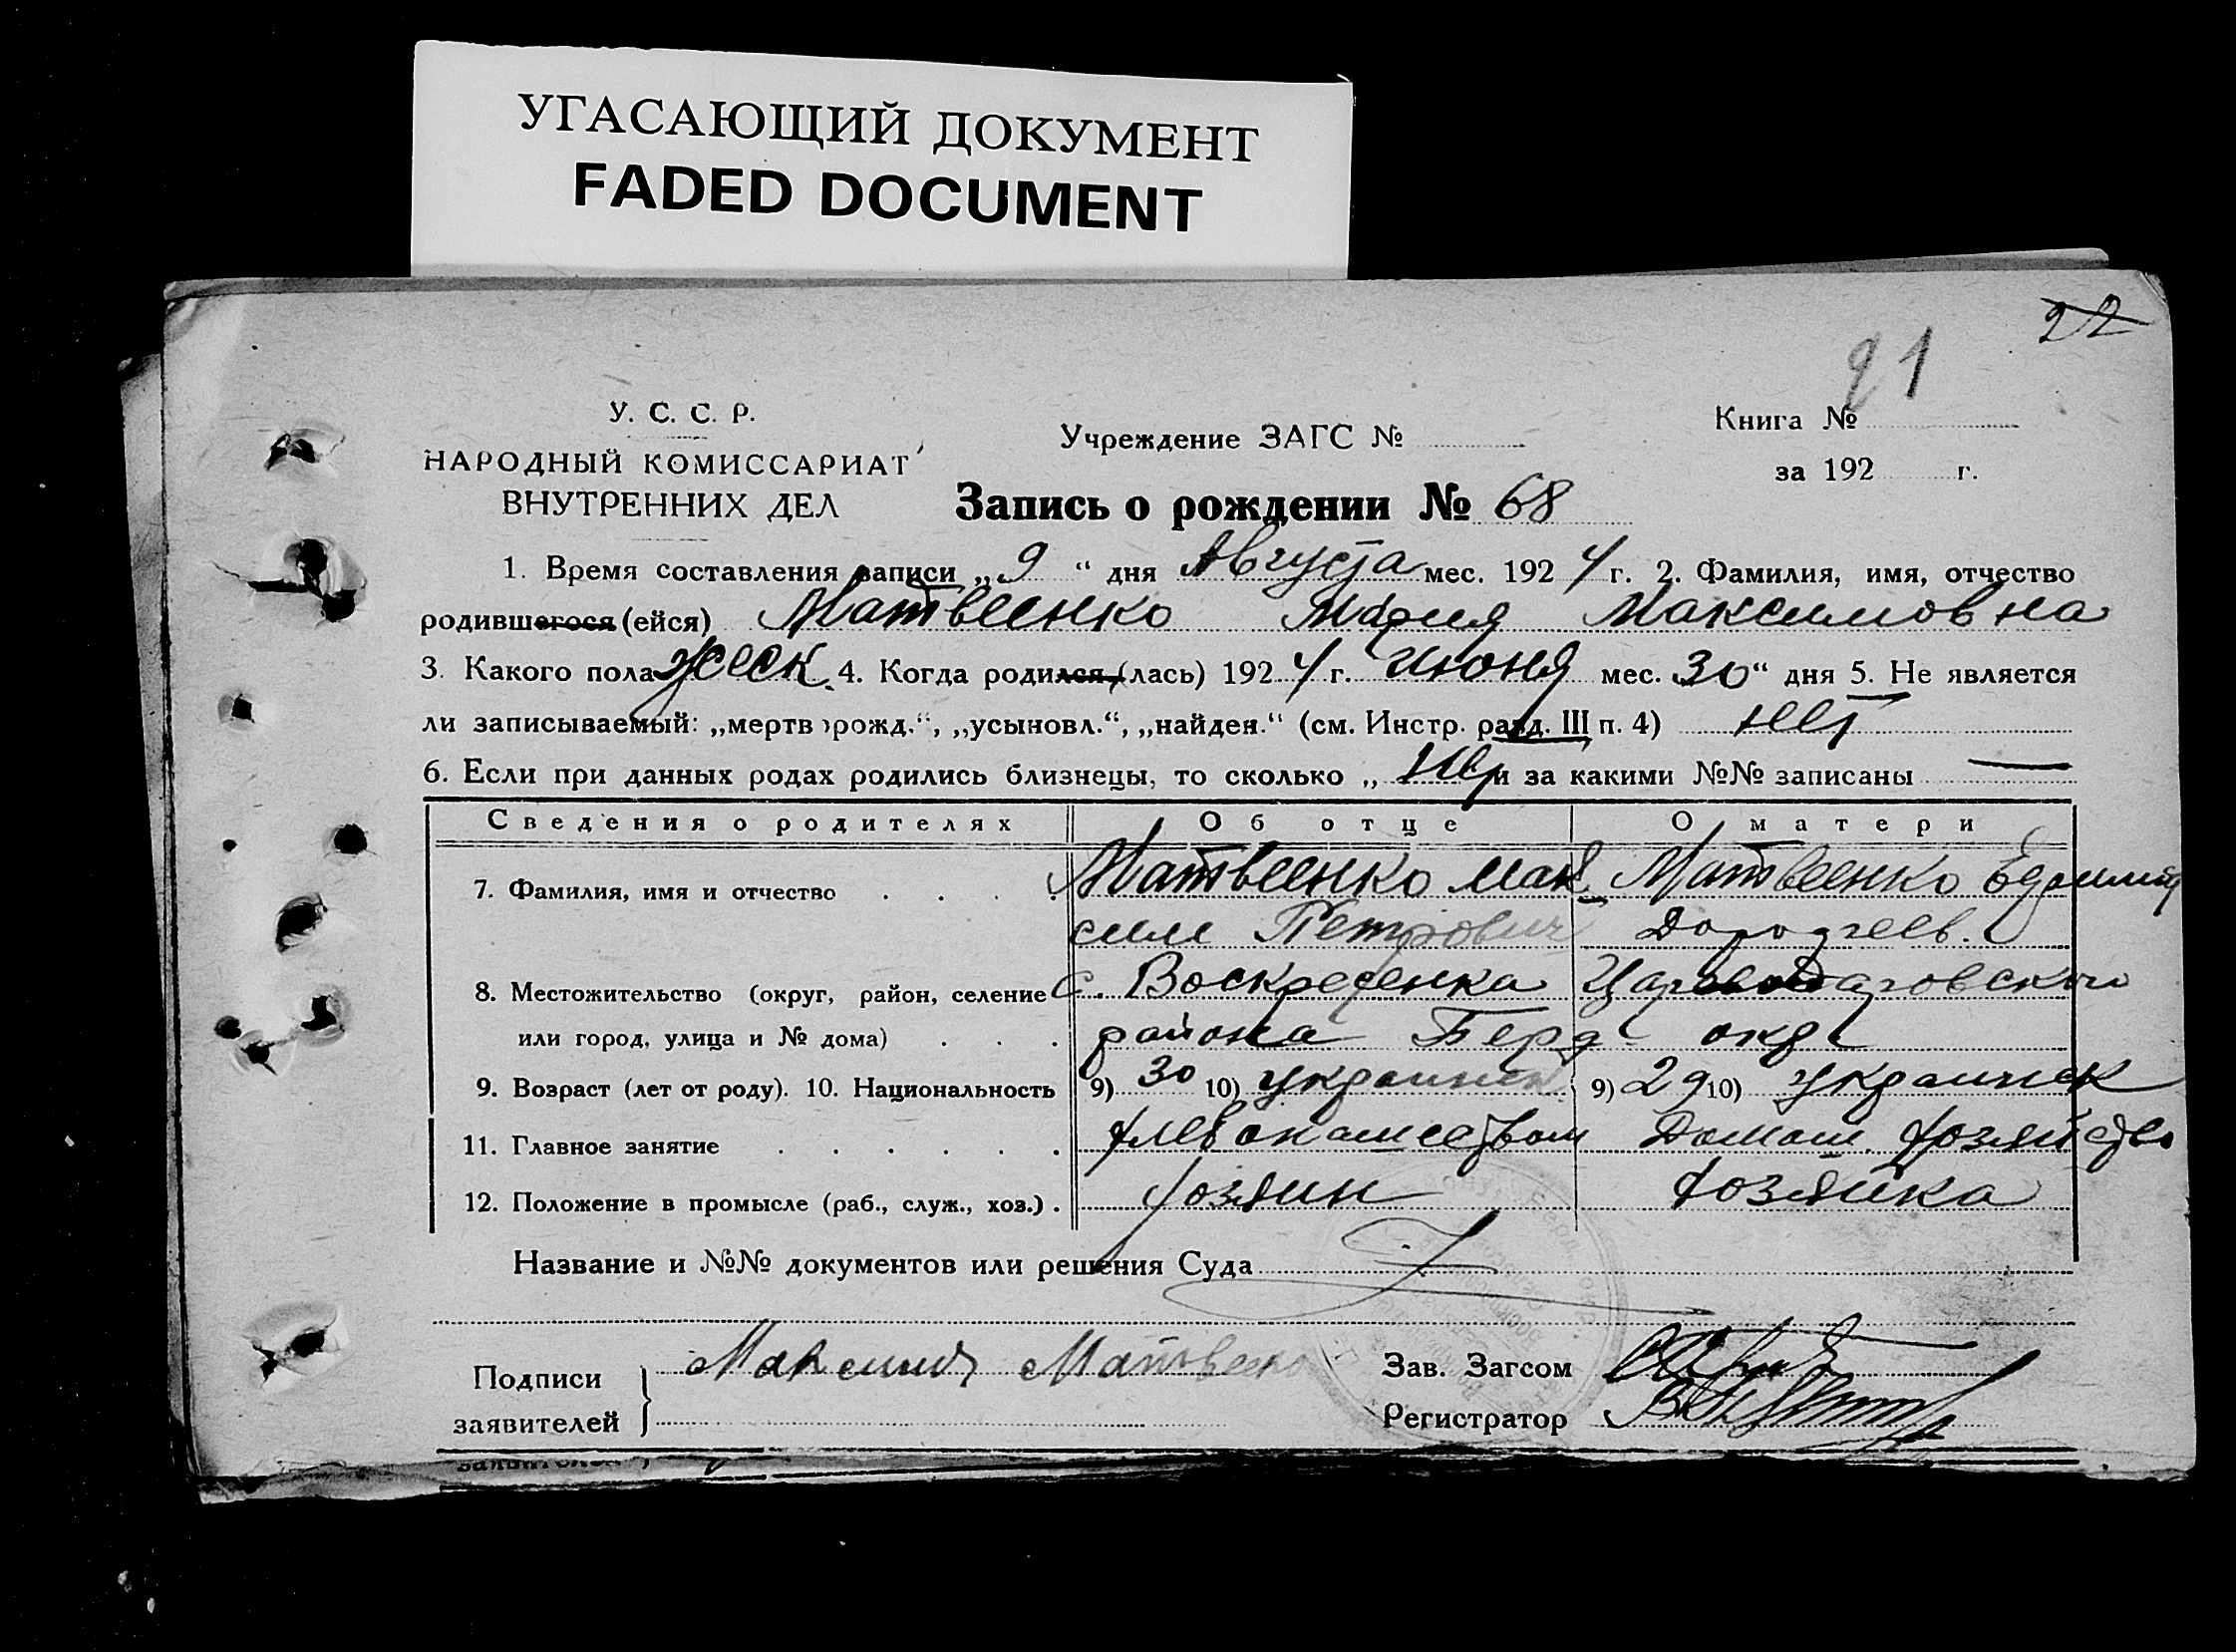 УГАСАЮЩИЙ ДОКУМЕНТ
FADED DOCUMENT
22
21
У. С. С. Р.
НАРОДНЫЙ КОМИССАРИАТ
ВНУТРЕННИХ ДЕЛ
Учреждение ЗАГС №
Книга №
за 192 г.
Запись о рождении № 68
1. Время составления записи „9“ дня Августа мес. 1924 г. 2. Фамилия, имя, отчество
родившегося (ейся) Матвеенко Мария Максимовна
3. Какого пола женск. 4. Когда родился, (лась) 1924 г. июня мес. 30“ дня 5. Не является
ли записываемый: „мертворожд.“, „усыновл.“, „найден.“ (см. Инстр. разд. III п. 4) нет
6. Если при данных родах родились близнецы, то сколько „ нет и за какими №№ записаны —
Сведения о родителях Об отце О матери
7. Фамилия, имя и отчество Матвеенко Мак Матвеенко
сим Петрович Дорофеев.
8. Местожительство (округ, район, селение с. Воскресенка
или город, улица и № дома) района Берд окр
9. Возраст (лет от роду). 10. Национальность 9) 30 10) украинец 9) 29 10) украинск
11. Главное занятие хлебопашеством Домаш. хозяйство
12. Положение в промысле (раб., служ., хоз.) хозяин хозяйка
Название и №№ документов или решения Суда
Подписи заявителей Максим Матвеенко
Зав. Загсом
Регистратор